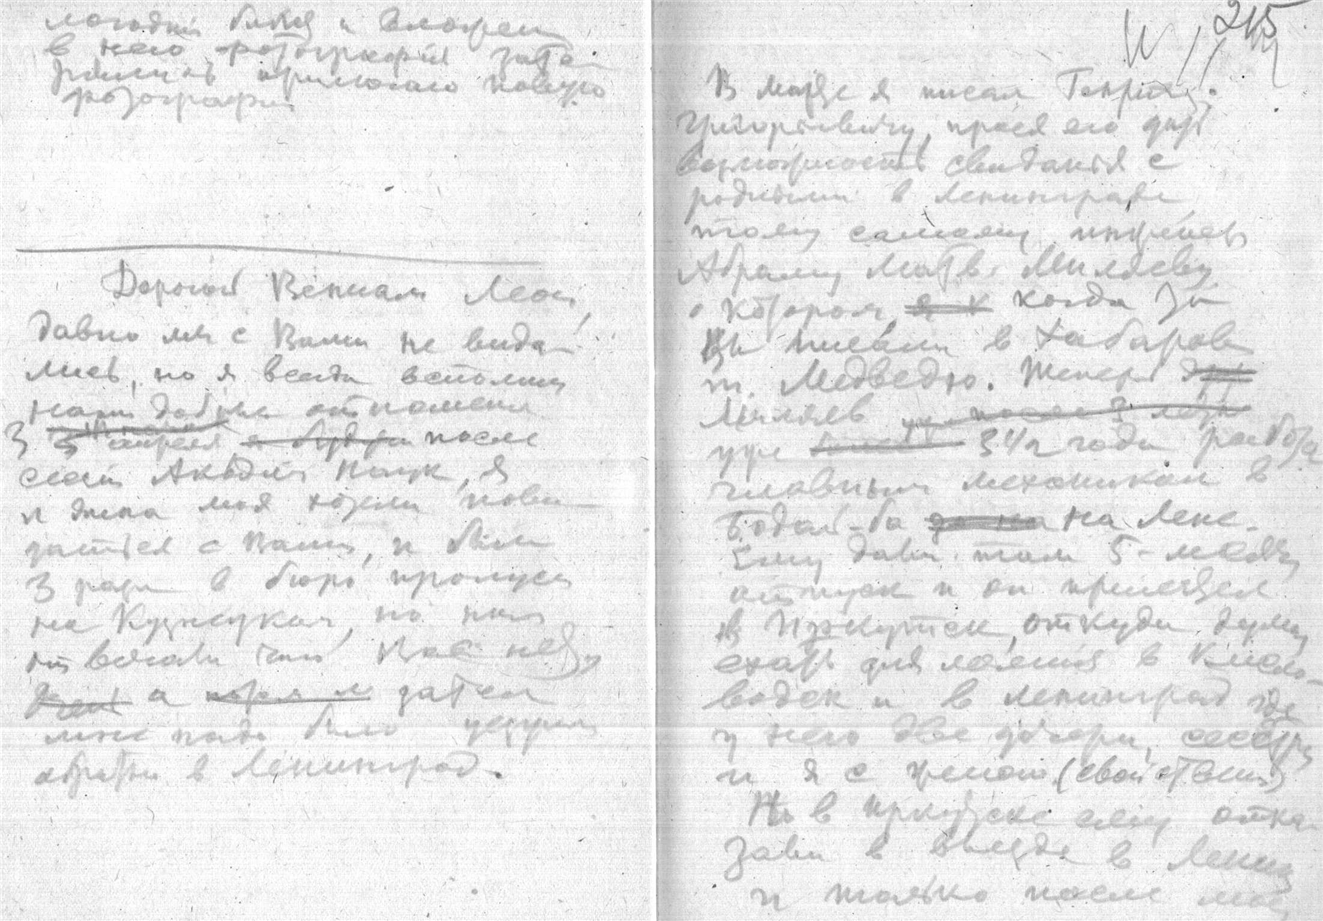 в него фотографий
прилагаю новую
фотографию
Дорогой Вениам Леон,
давно мы с Вами не вида-
лись, но я всегда вспомин
наши добрые отношени
3 апреля после
сесии Академии Наук, я
и жена моя хотели пови
даться с Вами, и были
3 раза в бюро пропуск
на Кузнецком, но нам
что Вас нет,
а затем
мне надо было уезжать
обратно в Ленинград.
215
В марте я писал Генриху
Григорьевичу, прося его дать
возможность свиданья с
родными в Ленинграде
тому самому
Абраму Матв. Миляеву
о котором когда
Вы писали в Хабаровск
т. Медведю. Теперь
Миляев
уже 3 1/2 года работа
главным механиком в
Бодай-бо на Лене.
Ему дали там 5-месяц
отпуск и он приехал
в Иркутск, откуда думал
ехать для лечения в Кисло-
водск и в Ленинград где
у него две дочери, сестра
и я с женой (свойственн)
Но в Иркутске ему отка-
зали в въезде в Ленинг
и только после мое